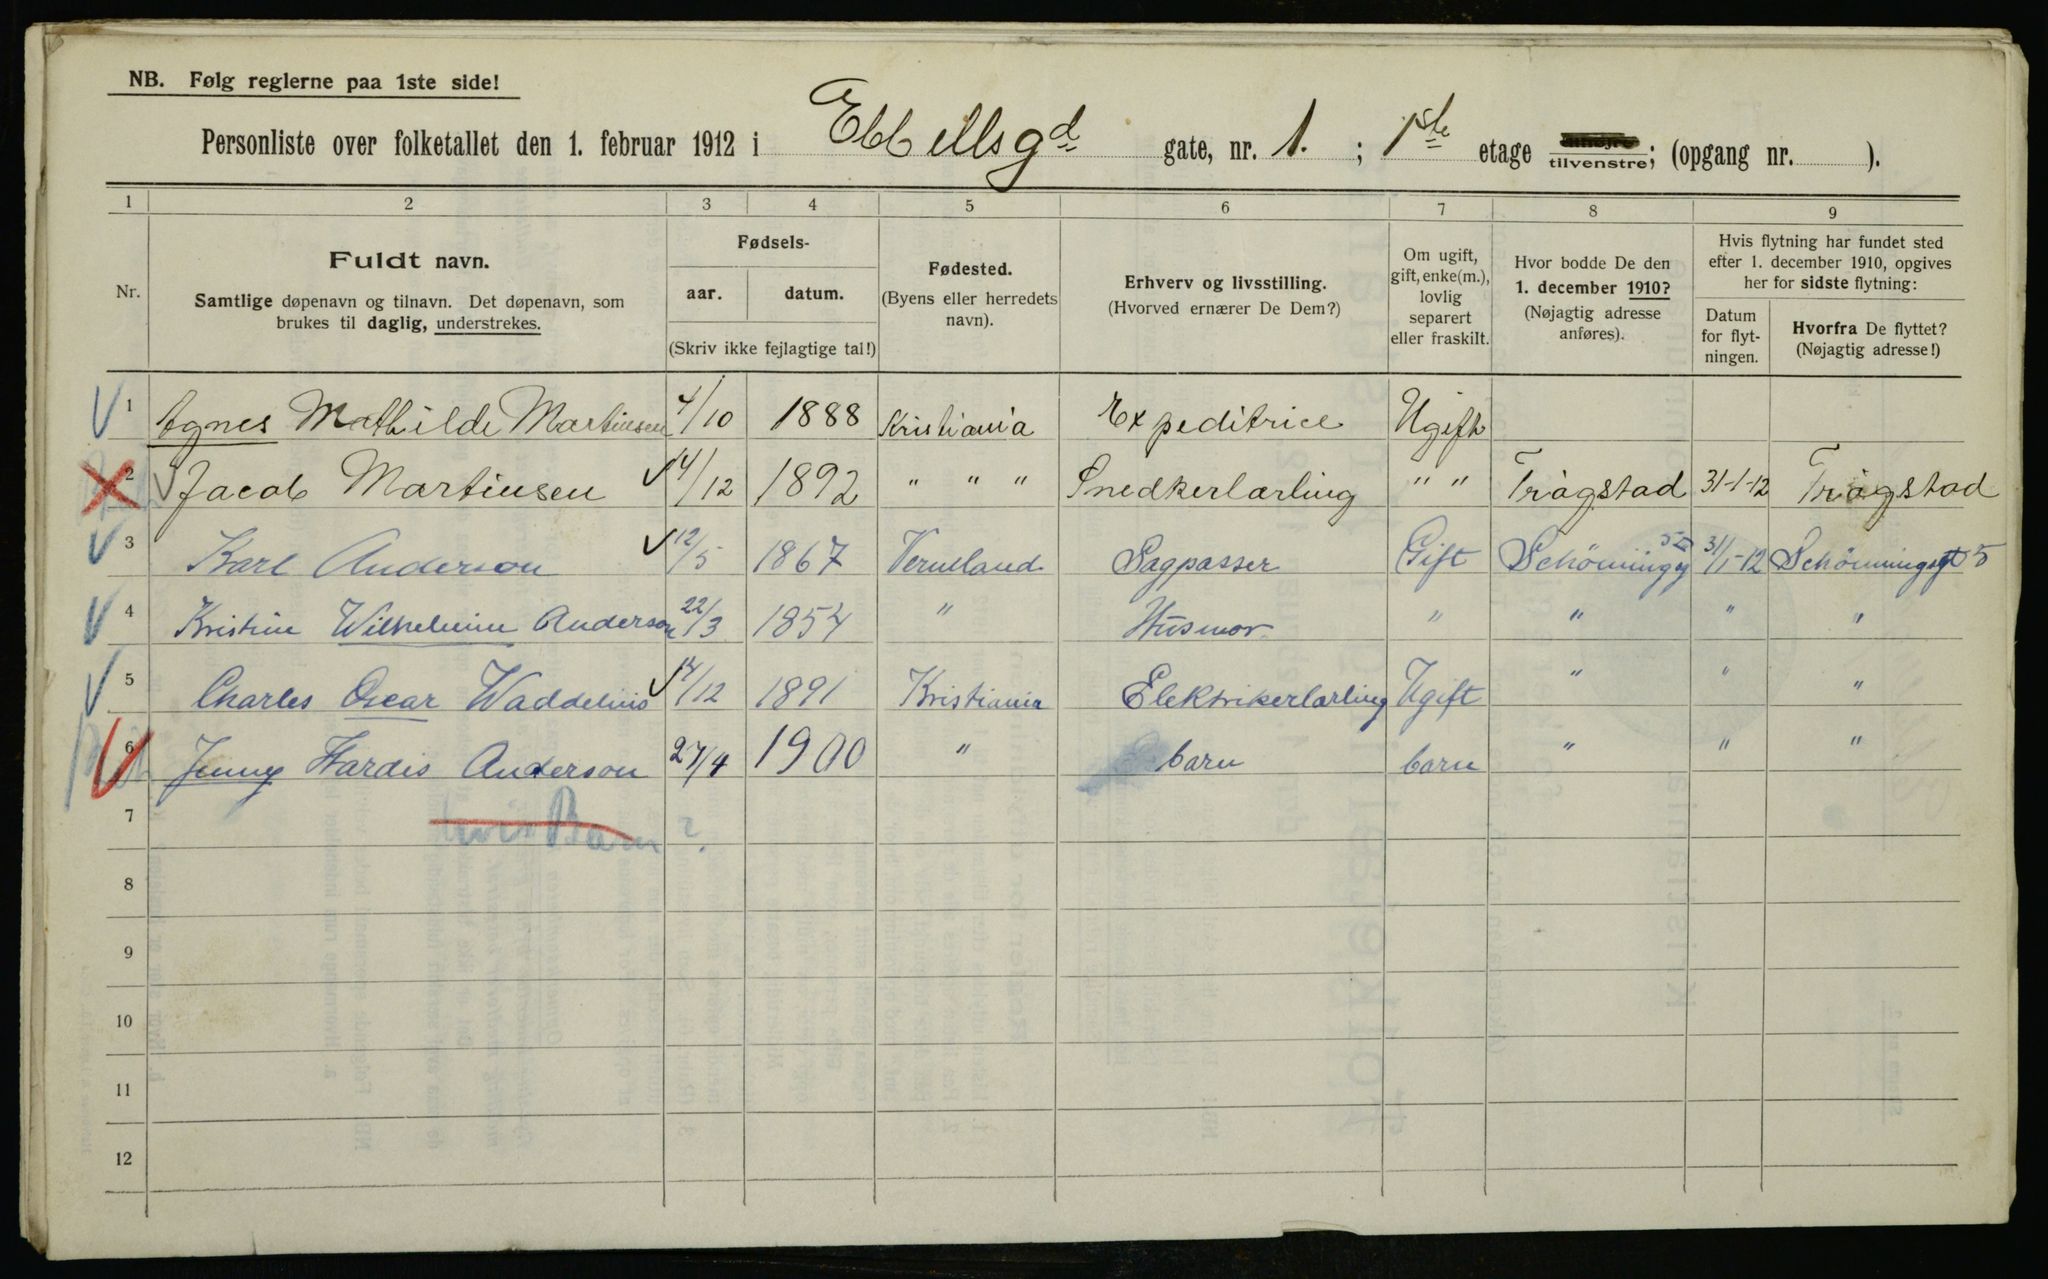 NB. Følg reglerne paa 1ste side!
Personliste over folketallet den 1. februar 1912 i Ebbellsgd gate, nr. 1. ; 1ste etage tilvenstre; (opgang nr. ).
1 2 3 4 5 6 7 8 9
Nr.
Fuldt navn.
Samtlige døpenavn og tilnavn. Det døpenavn, som
brukes til daglig, understrekes.
Fødsels-
aar. datum.
(Skriv ikke fejlagtige tal!)
Fødested.
(Byens eller herredets
navn).
Erhverv og livsstilling.
(Hvorved ernærer De Dem?)
Om ugift,
gift, enke(m.),
lovlig
separert
eller fraskilt.
Hvor bodde De den
1. december 1910?
(Nøjagtig adresse
anføres).
Hvis flytning har fundet sted
efter 1. december 1910, opgives
her for sidste flytning:
Datum
for flyt-
ningen.
Hvorfra De flyttet?
(Nøjagtig adresse!)
1 Agnes Mathilde Martinsen 4/10 1888 Kristiania Expeditrice Ugift
2 Jacob Martinsen 14/12 1892 " " " Snedkerlærling " " Trøgstad 31-1-12 Trøgstad
3 Karl Anderson 12/5 1867 Vermland Sagpasser Gift Schönningg 5 II 31/1-12 Schönningsgt 5
4 Kristine Wilhelmine Anderson 22/3 1854 " Husmor " " " "
5 Charles Oscar Waddelius 14/12 1891 Kristiania Elektrikerlærling Ugift " " "
6 Jenny Hardis Anderson 27/4 1900 " barn barn " " "
7 Barn ?
8
9
10
11
12